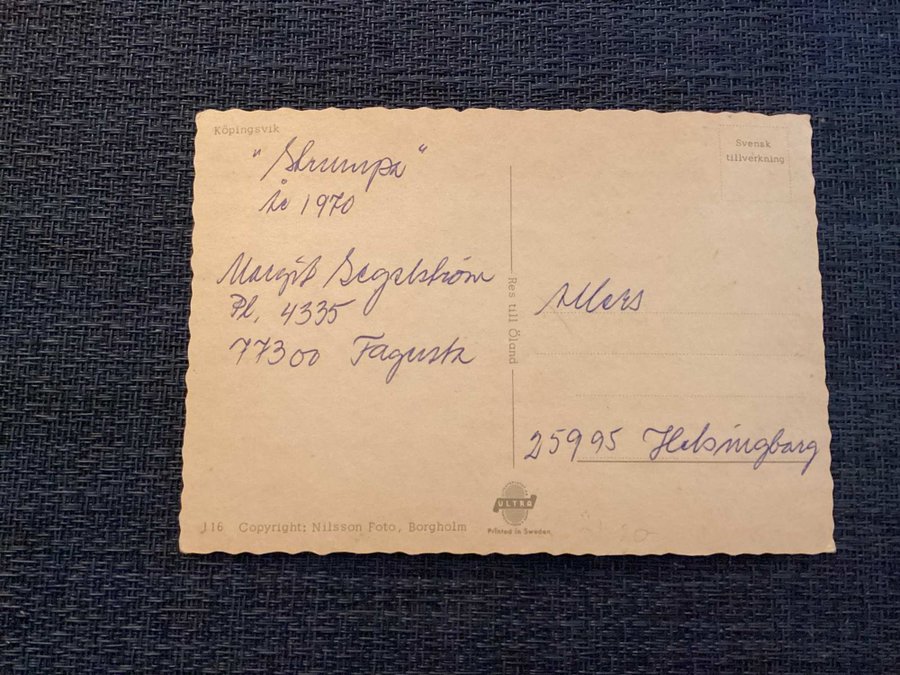 Köpingsvik
"Strumpa"
år 1970
Margit Segelström
Pl. 4335
77300 Fagersta
Res till Öland
Svensk
tillverkning
Allers
25995 Helsingborg
J16 Copyright: Nilsson Foto, Borgholm
ULTRA
Printed in Sweden